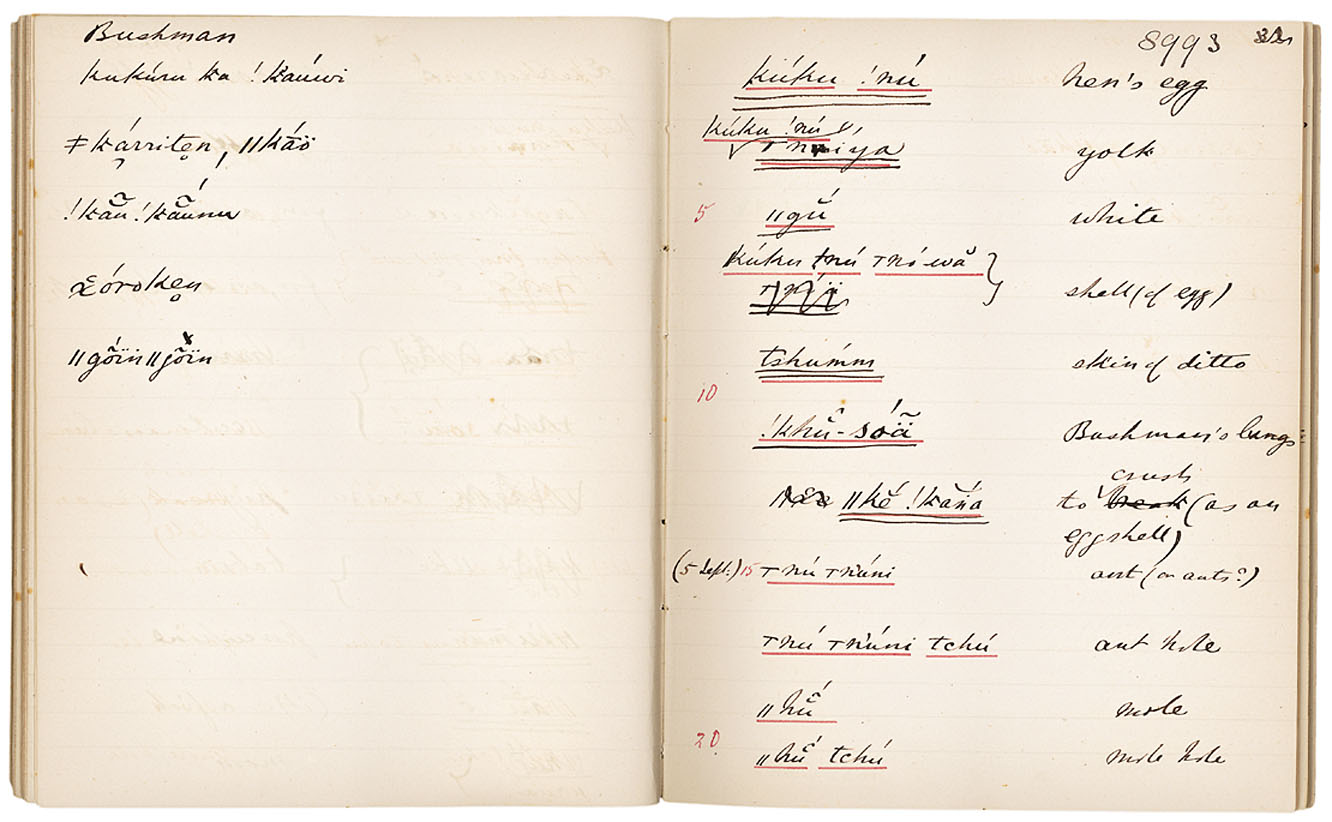 Bushman
kukúru ka ! kaúwi
ǂ kárriten̥, ǁkáö
! kãũ ! kãũnu
óroken̥
ǁgõïn ǁgõïn
8993
kúku ! nú hen's egg
kúku ! nú
yolk
5 ǁgú white
kúku !nú ⊤nó-wă
shell (of egg)
tshumm skin of ditto
10
! khũ-sóä̃ Bushman's lungs
crush
ǁké ! kãńa to break (as an
eggshell)
(5 Sept.) 15 ⊤nú ⊤núni ant (or ants?)
⊤nú ⊤núni tchú ant hole
ǁhṹ mole
20 ǁhṹ tchú mole hole